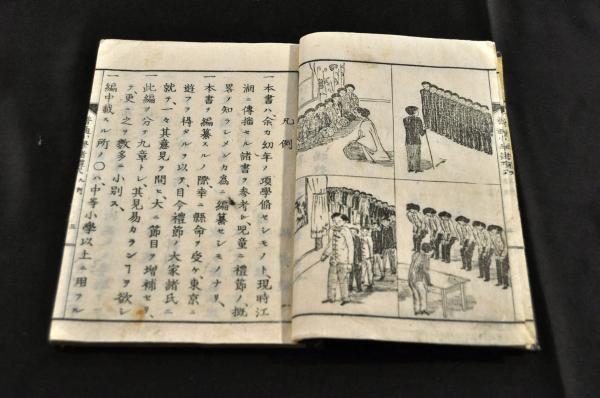 凡例
一本書ハ、余カ幼年ノ頃學脩セシモノト、現時江
湖ニ傳播セル諸書ヲ參考シ、児童ニ禮節ノ概
畧ヲ知ラシメンカ為ニ編纂セシモノナリ、
一本書ヲ編纂スルノ際、幸ニ縣命ヲ受ケ、東京ニ
遊フヲ得タルヲ以テ、目今禮節ノ大家諸氏ニ
就テ、一々其意見ヲ問ヒ、大ニ節目ヲ増補セリ、
一此編分ヲ九章トシ、其見易カランヿヲ欲シ
テ、更ニ之ヲ數多ニ小別ス、
一編中載スル所ノ〇ハ、中等小學以上ニ用フル